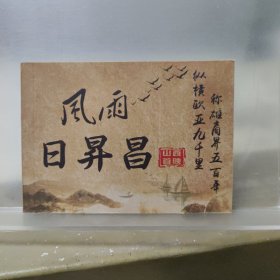 風雨
日昇昌
纵横欧亚九千里
称雄商界五百年